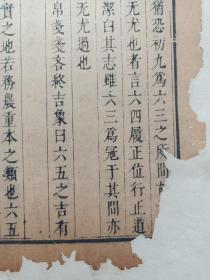 猶恐初九爲六三之所間
无尤也者言六四履正位行正道
潔白其志雖六三爲寇于其間亦
无尤過也
帛戔戔吝終吉象曰六五之吉有
實之地若務農重本之類也六五